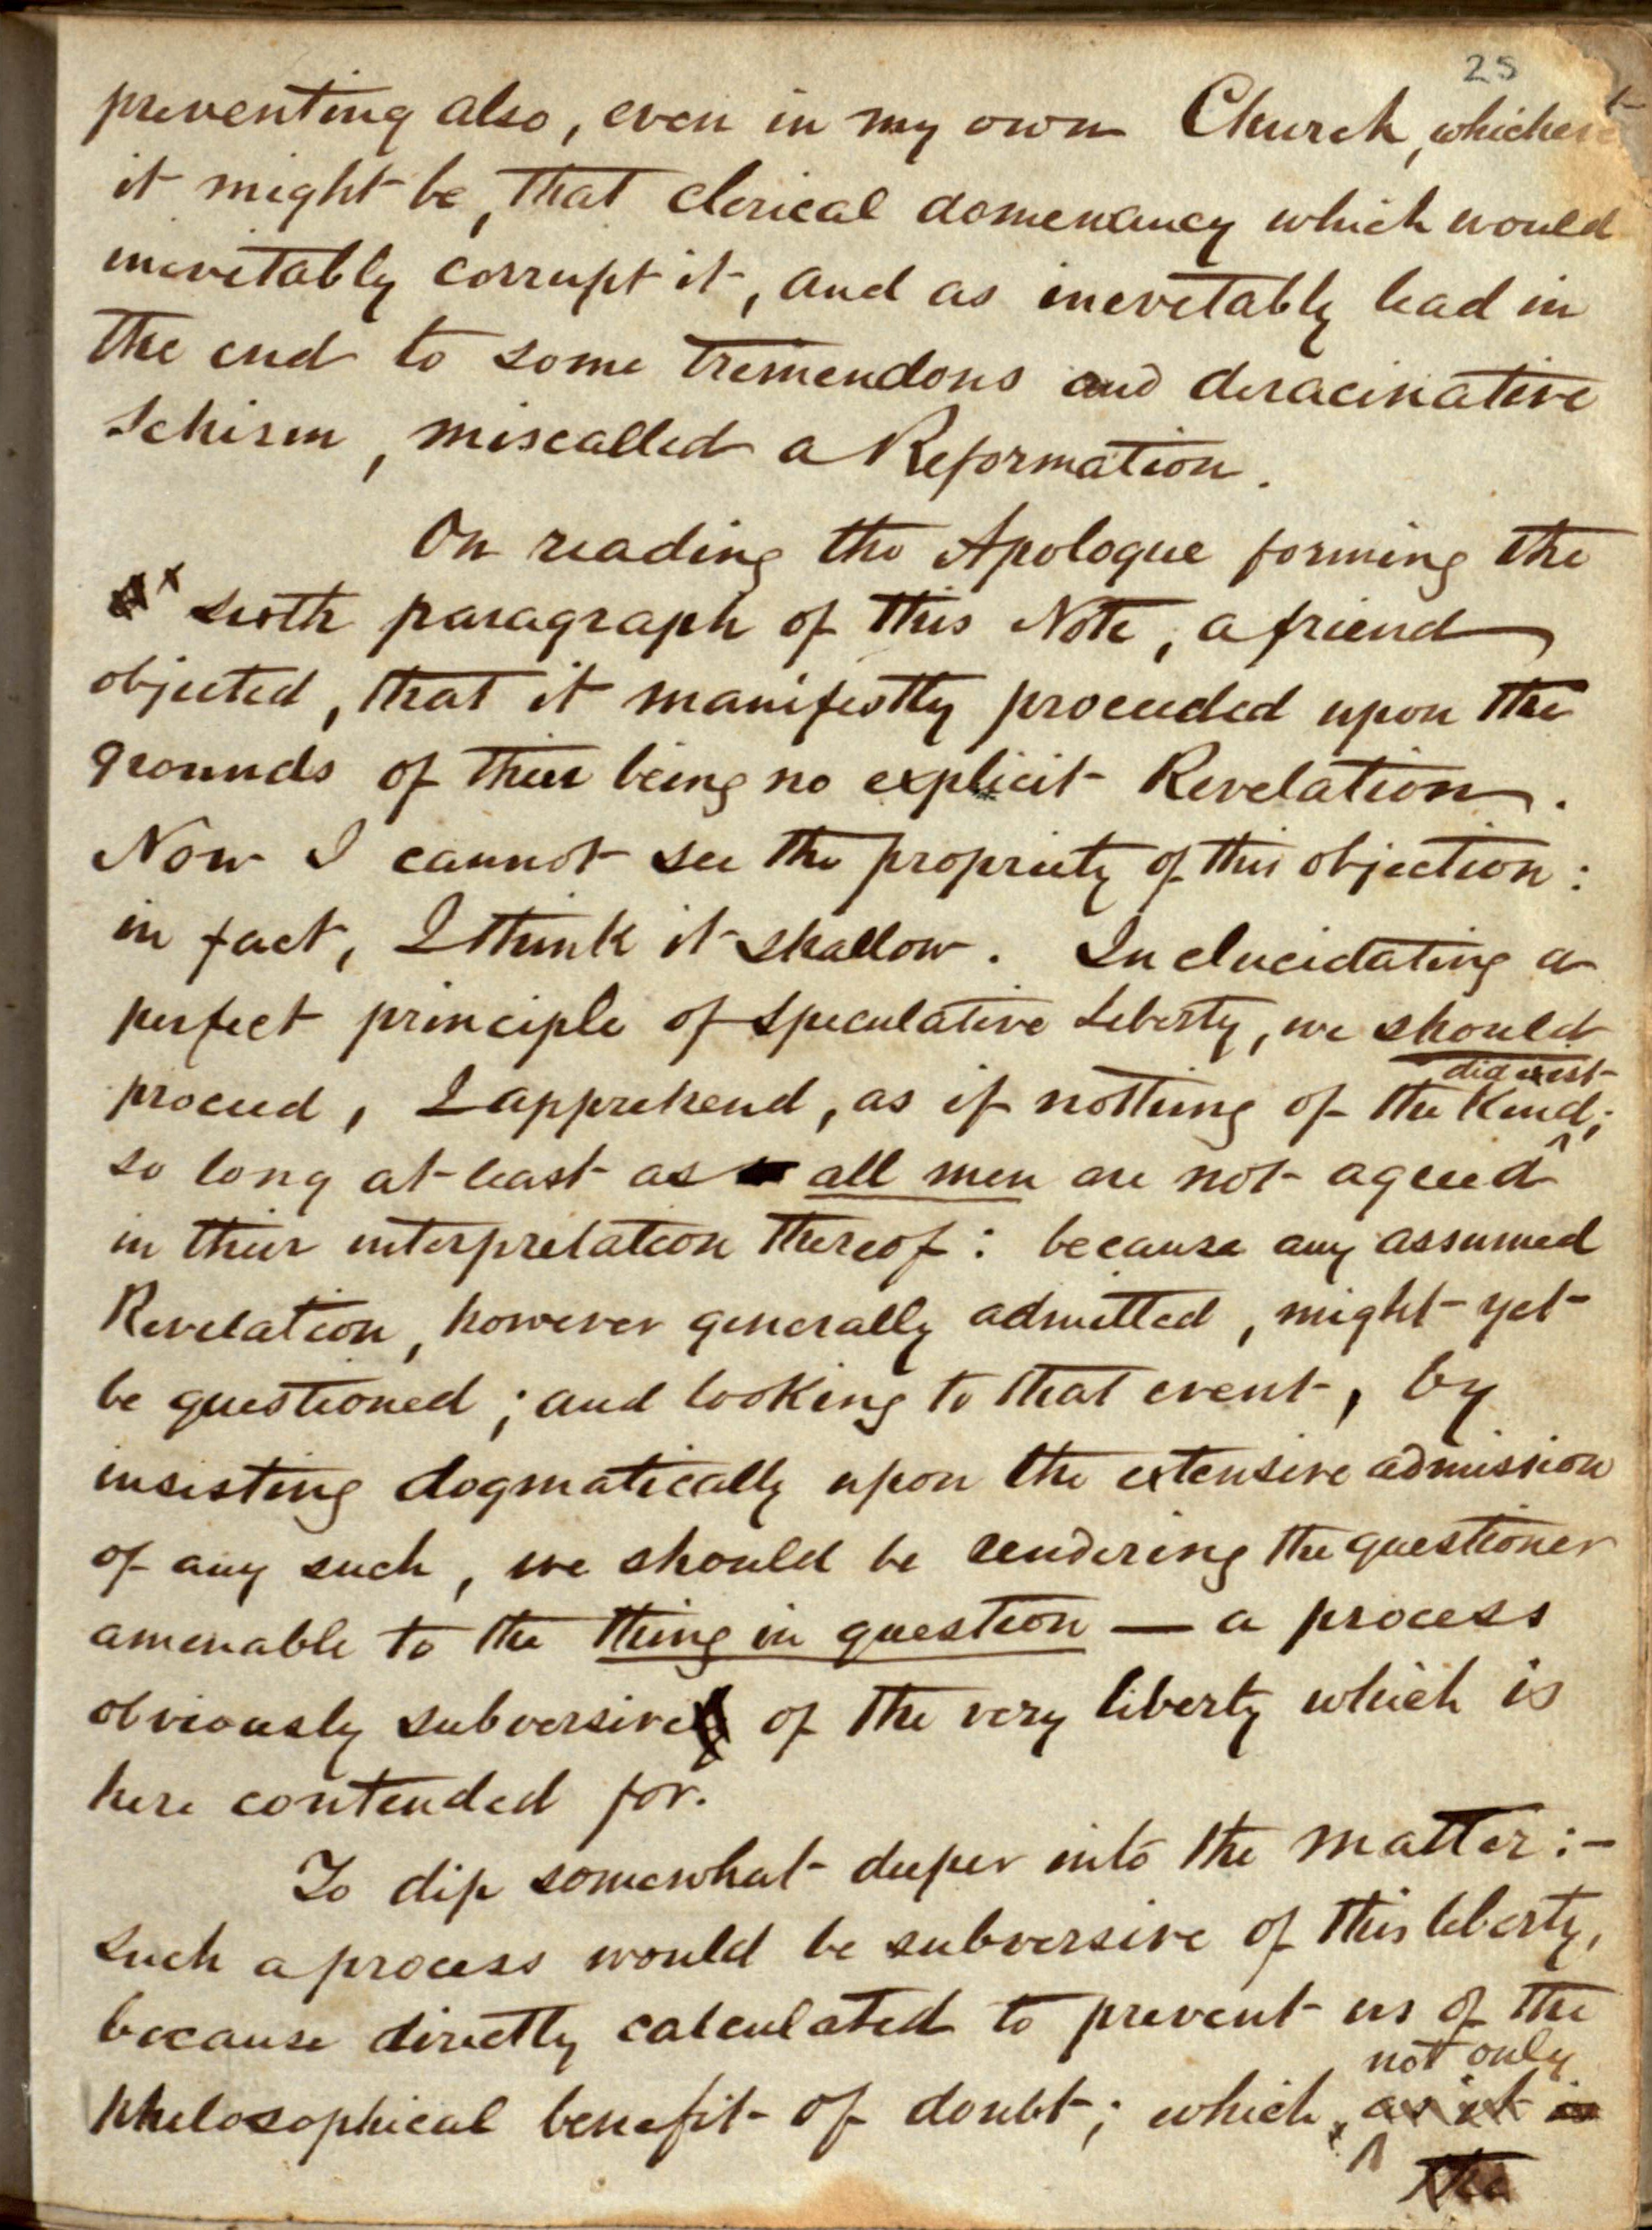 25
preventing also, even in my own Church, whichever
it might be, that clerical domenancy which would
inevitably corrupt it, and as inevitably lead in
the end to some tremendous and deracinative
Schism, miscalled a Reformation.
On reading the Apologue forming the
x sixth paragraph of this Note, a friend
objected, that it manifestly proceeded upon the
grounds of their being no explicit Revelation.
Now I cannot see the propriety of this objection:
in fact, I think it shallow. In elucidating a
perfect principle of speculative Liberty, we should
did exist
proceed, I apprehend, as if nothing of the Kind;
so long at least as all men are not agreed
in their interpretation thereof: because any assumed
Revelation, however generally admitted, might yet
be questioned; and looking to that event, by
insisting dogmatically upon the extensive admission
of any such, we should be rendering the questioner
amenable to the thing in question — a process
obviously subversive of the very liberty which is
here contended for.
To dip somewhat deeper into the matter:—
such a process would be subversive of this liberty,
because directly calculated to prevent us of the
not only
philosophical benefit of doubt; which, as it is
the